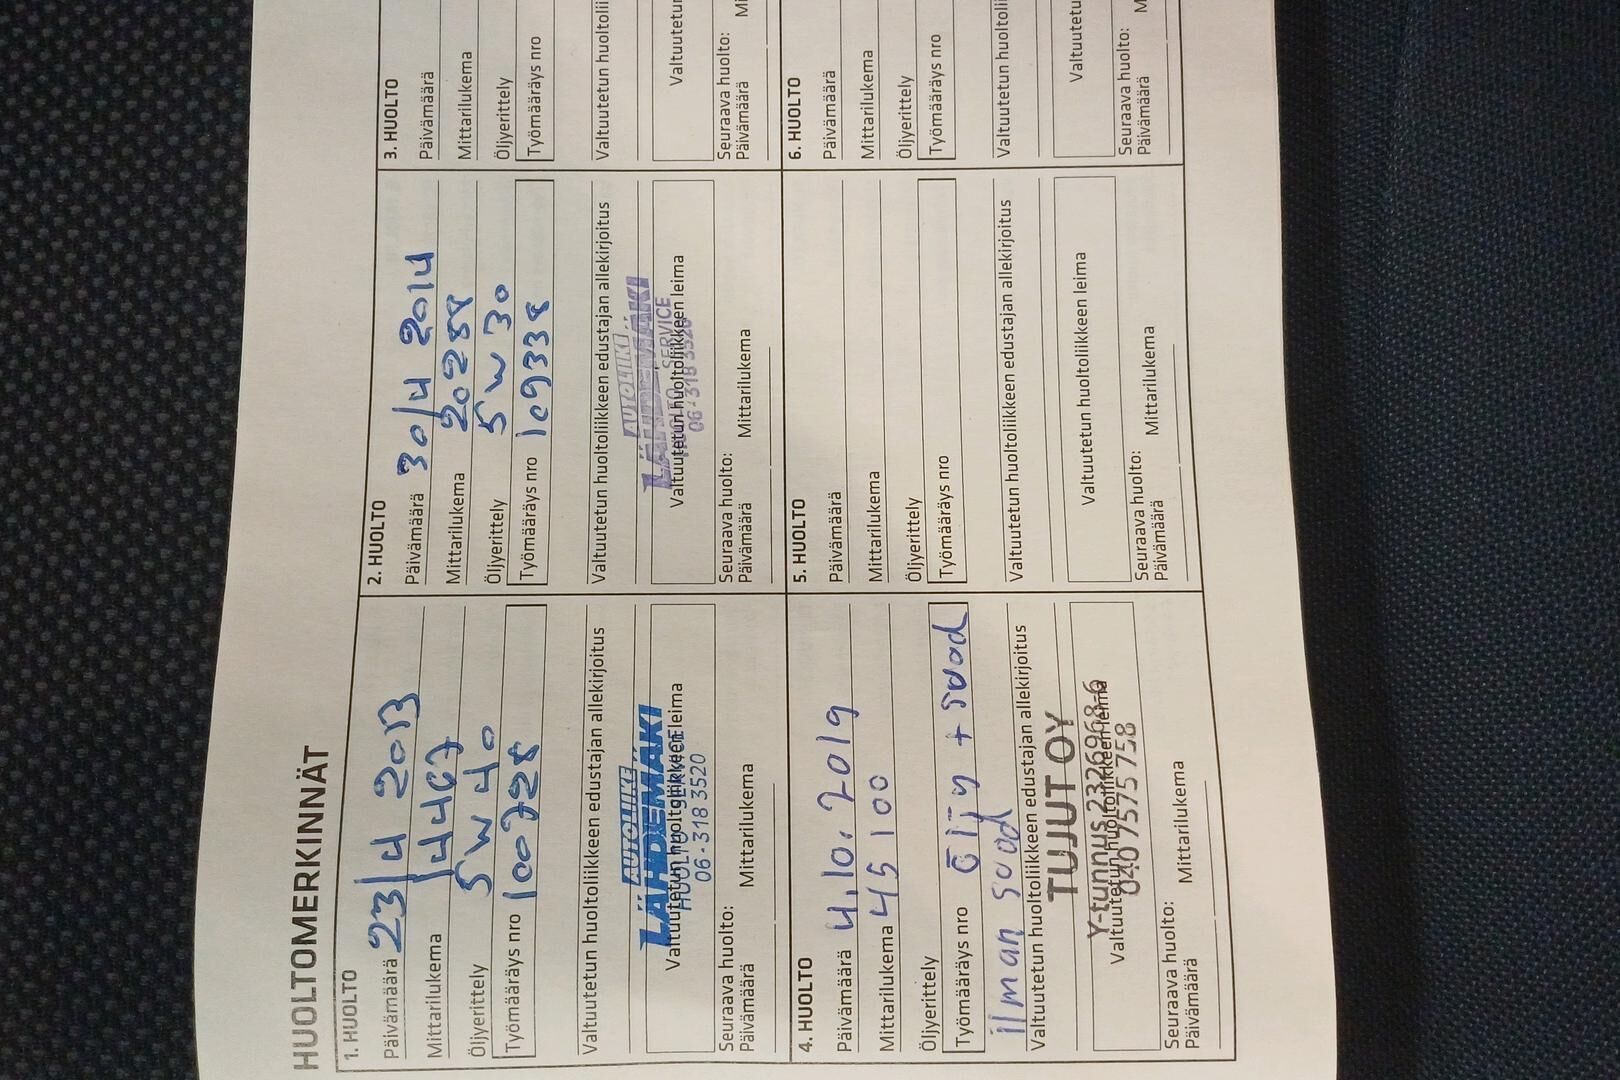 HUOLTOMERKINNÄT
1. HUOLTO
Päivämäärä 23/4 2013
Mittarilukema 14467
Öljyerittely 5W40
Työmääräys nro 100728
Valtuutetun huoltoliikkeen edustajan allekirjoitus
AUTOLIIKE
LÄHDEMÄKI
Valtuutetun huoltoliikkeen leima
06-318 3520
Seuraava huolto:
Päivämäärä Mittarilukema
2. HUOLTO
Päivämäärä 30/4 2014
Mittarilukema 20288
Öljyerittely 5W30
Työmääräys nro 109338
Valtuutetun huoltoliikkeen edustajan allekirjoitus
AUTOLIIKE
LÄHDEMÄKI
HUOLTO SERVICE
Valtuutetun huoltoliikkeen leima
06-318 3520
Seuraava huolto:
Päivämäärä Mittarilukema
3. HUOLTO
Päivämäärä
Mittarilukema
Öljyerittely
Työmääräys nro
Valtuutetun huoltolii
Valtuutetun
Seuraava huolto:
Päivämäärä Mi
4. HUOLTO
Päivämäärä 4.10.2019
Mittarilukema 45100
Öljyerittely
Työmääräys nro Öljy + suod
ilman suod
Valtuutetun huoltoliikkeen edustajan allekirjoitus
TUJUT OY
Y-tunnus 2326968-6
Valtuutetun huoltoliikkeen leima
040 7575 758
Seuraava huolto:
Päivämäärä Mittarilukema
5. HUOLTO
Päivämäärä
Mittarilukema
Öljyerittely
Työmääräys nro
Valtuutetun huoltoliikkeen edustajan allekirjoitus
Valtuutetun huoltoliikkeen leima
Seuraava huolto:
Päivämäärä Mittarilukema
6. HUOLTO
Päivämäärä
Mittarilukema
Öljyerittely
Työmääräys nro
Valtuutetun huoltoli
Valtuutetu
Seuraava huolto:
Päivämäärä M